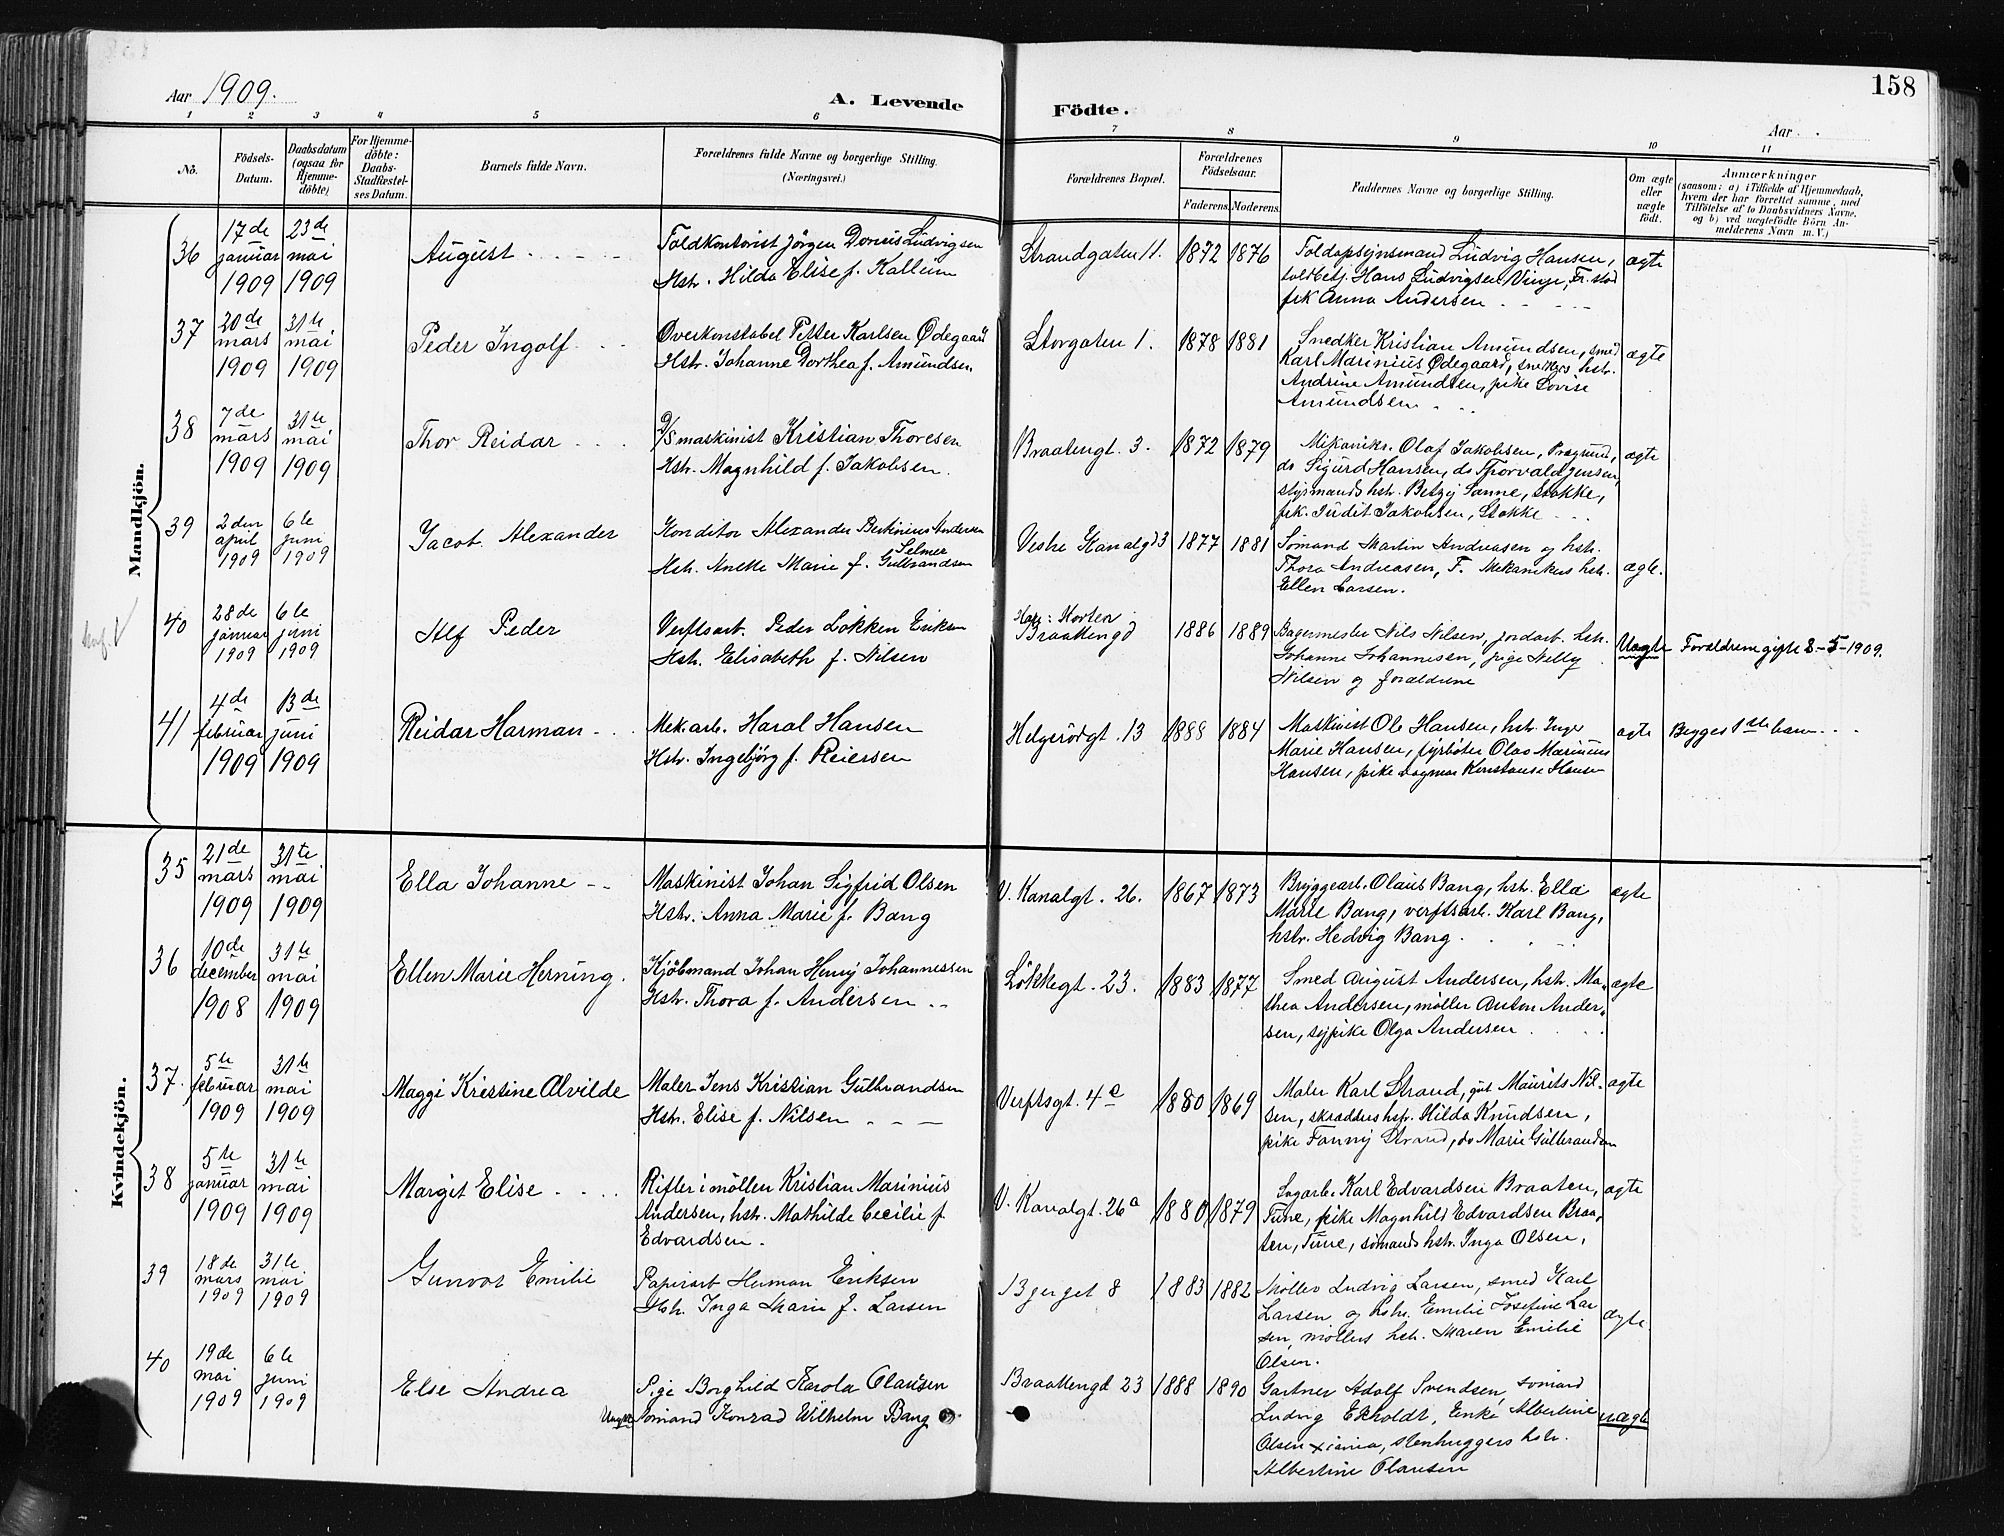 158
Aar 1909.
A. Levende Födte.
Aar
1 2 3 4 5 6 7 8 9 10 11
No.
Födsels-
Datum.
Daabsdatum
(ogsaa for
Hjemme-
döbte)
For Hjemme-
döbte:
Daabs-
Stadfæstel-
ses Datum.
Barnets fulde Navn.
Forældrenes fulde Navne og borgerlige Stilling.
(Næringsvei.)
Forældrenes Bopæl.
Forældrenes
Födselsaar.
Faderens.
Moderens.
Faddernes Navne og borgerlige Stilling.
Om ægte
eller
uægte
födt.
Anmærkninger
(saasom: a) i Tilfælde af Hjemmedaab,
hvem der har forrettet samme, med
Tilföielse af to Daabsvidners Navne,
og b) ved uægtefödte Börn An-
melderens Navn m. V.)
Mandkjön.
36
17de januar 1909
23de mai 1909
August
Toldkontorist Jörgen Donsis Ludvigsen
Hstr. Hilda Elise f. Kallum
Strandgaten 11.
1872
1876
Toldopsynsmand Ludvig Hansen,
toldbetj. Hans Ludvigsen Vinje, Fr.stad
frk Anna Andersen
ægte
37
20de mars 1909
31te mai 1909
Peder Ingolf
Overkonstabel Petter Karlsen Ødegaard
Hstr. Johanne Dorthea f. Amundsen
Storgaten 1.
1878
1881
Snedker Kristian Amundsen, smed
Karl Marinius Ødegaard, snedkers hstr.
Andrine Amundsen, pike Lovise
Amundsen
ægte
38
7de mars 1909
31te mai 1909
Thor Reidar
D/S maskinist Kristian Thoresen
Hstr. Magnhild f. Jakobsen.
Braatengt. 3.
1872
1879
Mekanikr. Olaf Jakobsen, Prægrund,
do Sigurd Hansen, do Thorvald Jensen,
styrmands hstr. Betzy Sanne, Stokke,
frk. Judit Jakobsen, Stokke
ægte
39
2den april 1909
6te juni 1909
Jacob Alexander
Konditor Alexander Bertinius Andersen
Selmer
Hstr. Anette Marie f. Gulbrandsen
Vestre Kanalgd 3
1877
1881
Sømand Martin Andreasen og hstr.
Thora Andreasen, F. Mekanikers hstr.
Ellen Larsen.
ægte.
40
28de januar 1909
6te juni 1909
Alf Peder
Verftsarb. Peder Løkken Eriksen
Hstr. Elisabeth f. Nilsen
Braattengd
1886
1889
Bagermester Nils Nilsen, jordarb. hstr.
Johanne Johannesen, pige Nelly
Nilsen og forældrene
Uægte
Forældrene gifte 8-5-1909.
41
4de februar 1909
13de juni 1909
Reidar Harman
Mek.arb. Haral Hansen
Hstr. Ingebjörg f. Reiersen
Helgerödgt. 13
1888
1884
Maskinist Ole Hansen, hst. Inger
Marie Hansen, fyrbøter Olao Marinius
Hansen, pike Dagmar Konstanse Hansen
ægte
Begges 1ste barn
Kvindekjön.
35
21de mars 1909
31te mai 1909
Ella Johanne
Maskinist Johan Sigfrid Olsen
Hstr. Anna Marie f. Bang
V. Kanalgt. 26.
1867
1873
Bryggearb. Olaus Bang, hst. Ella
Marie Bang, verftsarb. Karl Bang,
hstr. Hedvig Bang.
ægte
36
10de december 1908
31te mai 1909
Ellen Marie Herning.
Kjöbmand Johan Henry Johannessen
Hstr. Thora f. Andersen
Lökkegt. 23.
1883
1877
Smed August Andersen, hstr. Ma-
thea Andersen, møller Anton Ander-
sen, sypike Olga Andersen
ægte
37.
5te februar 1909
31te mai 1909
Maggi Kristine Alvilde
Maler Jens Kristian Gulbrandsen
Hstr. Elise f. Nilsen
Verftsgt. 4e
1880
1869
Maler Karl Strand, gut Maurits Nil-
sen, skrædders hstr. Hilda Knudsen,
pike Fanny Strand, do Marie Gulbrandsen
ægte
38
5te januar 1909
31te mai 1909
Margit Elise
Rifler i møllen Kristian Marinius
Andersen, hstr. Mathilde Cecilie f.
Edvardsen.
V. Kanalgt. 26a
1880
1879
Sagarb. Karl Edvardsen Braaten,
Tune, pike Magnhild Edvardsen Braa-
ten, Tune, sömands hstr. Inga Olsen,
ægte
39
18de mars 1909
31te mai 1909
Gunvor Emilie
Papirarb Herman Eriksen
Hstr. Inga Marie f. Larsen
Bjerget 8
1883
1882
Møller Ludvig Larsen, smed Karl
Larsen og hstr. Emilie Josefine Lar
sen, møllers hstr. Maren Emilie
Olsen.
ægte.
40
19de mai 1909
6te juni 1909
Else Andrea
Pige Borghild Karola Olausen
Ungkr sømand Konrad Wilhelm Bang
Braattengd 23
1888
1890
Gartner Adolf Svendsen, sømand
Ludvig Ekholdt, Enke Albertine
Olsen xiania, stenhuggers hstr.
Albertine Olausen
uægte